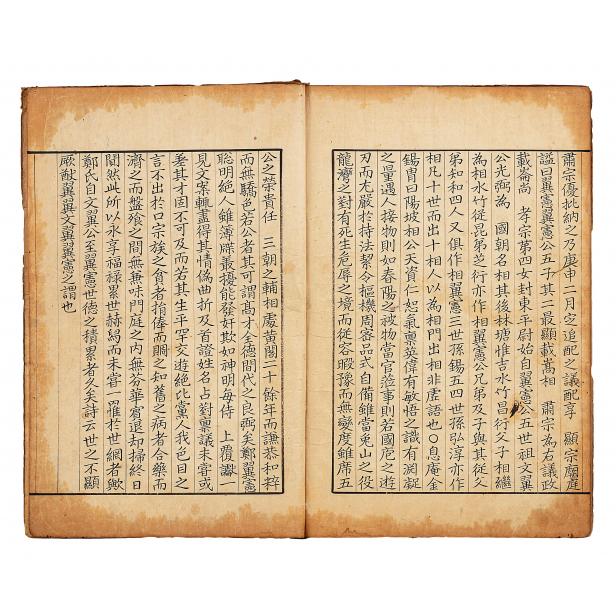 肅宗優批納之乃庚申二月定追配之議配享 顯宗廟庭
謚曰翼憲翼憲公五子其二最顯載嵩相 肅宗為右議政
載崙尚 孝宗第四女封東平尉始自翼憲公五世祖文翼
公光弼為 國朝名相其後林塘惟吉水竹昌衍父子相繼
為相水竹從昆弟芝衍亦作相翼憲公兄弟及子與其從父
弟知和四人又俱作相翼憲三世孫錫五四世孫弘淳亦作
相凡十世而出十相人以為相門出相非虛語也〇息庵金
錫胄曰陽坡相公天資仁恕氣稟英偉有敏悟之識有渊凝
之量遇人接物則如春陽之被物當官莅事則若國庖之遊
刃而尤嚴於持法絜令樞機周審品式自備雖當兎山之役
龍灣之對有死生危辱之境而從容暇豫而無變度雖席五
公之榮貴任 三朝之輔相處黃閣二十餘年而謙恭和粹
而無驕色若公者其可謂高才全德間代之良弼矣鄭翼憲
聰明絕人雖簿牒叢擾能發奸欺如神明每侍 上覆讞一
見文案輒盡得其情僞曲折及首證姓名占對稟議未嘗或
差其才固不可及而若其生平罕交遊絕比黨人我色目之
言不出於口宗族之貧者捐俸而賙之知舊之病者合藥而
濟之而盤飡之間無兼味門庭之內無芬華賓退却掃終日
閴然此所以永享福祿累世赫舃而未嘗一罹於世網者歟
鄭氏自文翼公至翼憲世德之積累者久矣詩云世之不顯
厥猷翼翼文翼翼憲之謂也